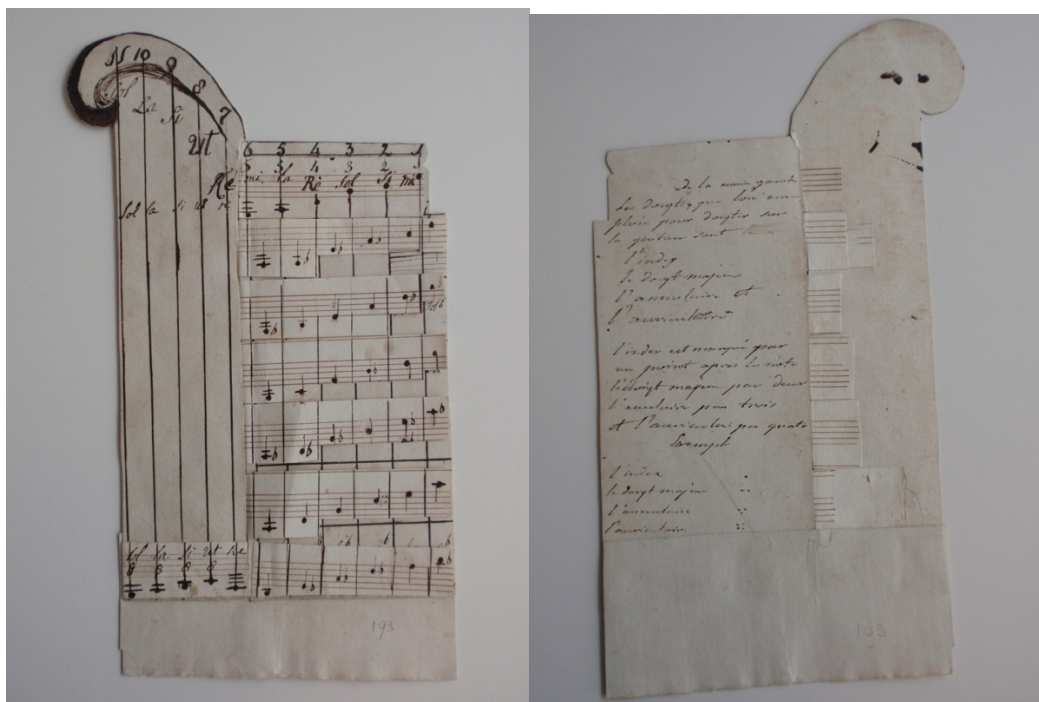 N 10 9 8 7
Sol La Si Ut Ré
6 5 4 3 2 1
6 5 4 3 2
mi La Ré Sol Si mi
Sol la si ut re
Sol la Si ut re
8 8 8 8
193
De la main gauche
les doigts que l'on em-
ploie pour doigter sur
la guitare sont
l'index
le doigt majeur
l'annulaire et
l'auriculaire
l'index est marqué par
un point après la note
le doigt majeur par deux
l'annulaire par trois
et l'auriculaire par quatre
Exemple
l'index .
le doigt majeur ..
l'annulaire :.
l'auriculaire ::
193